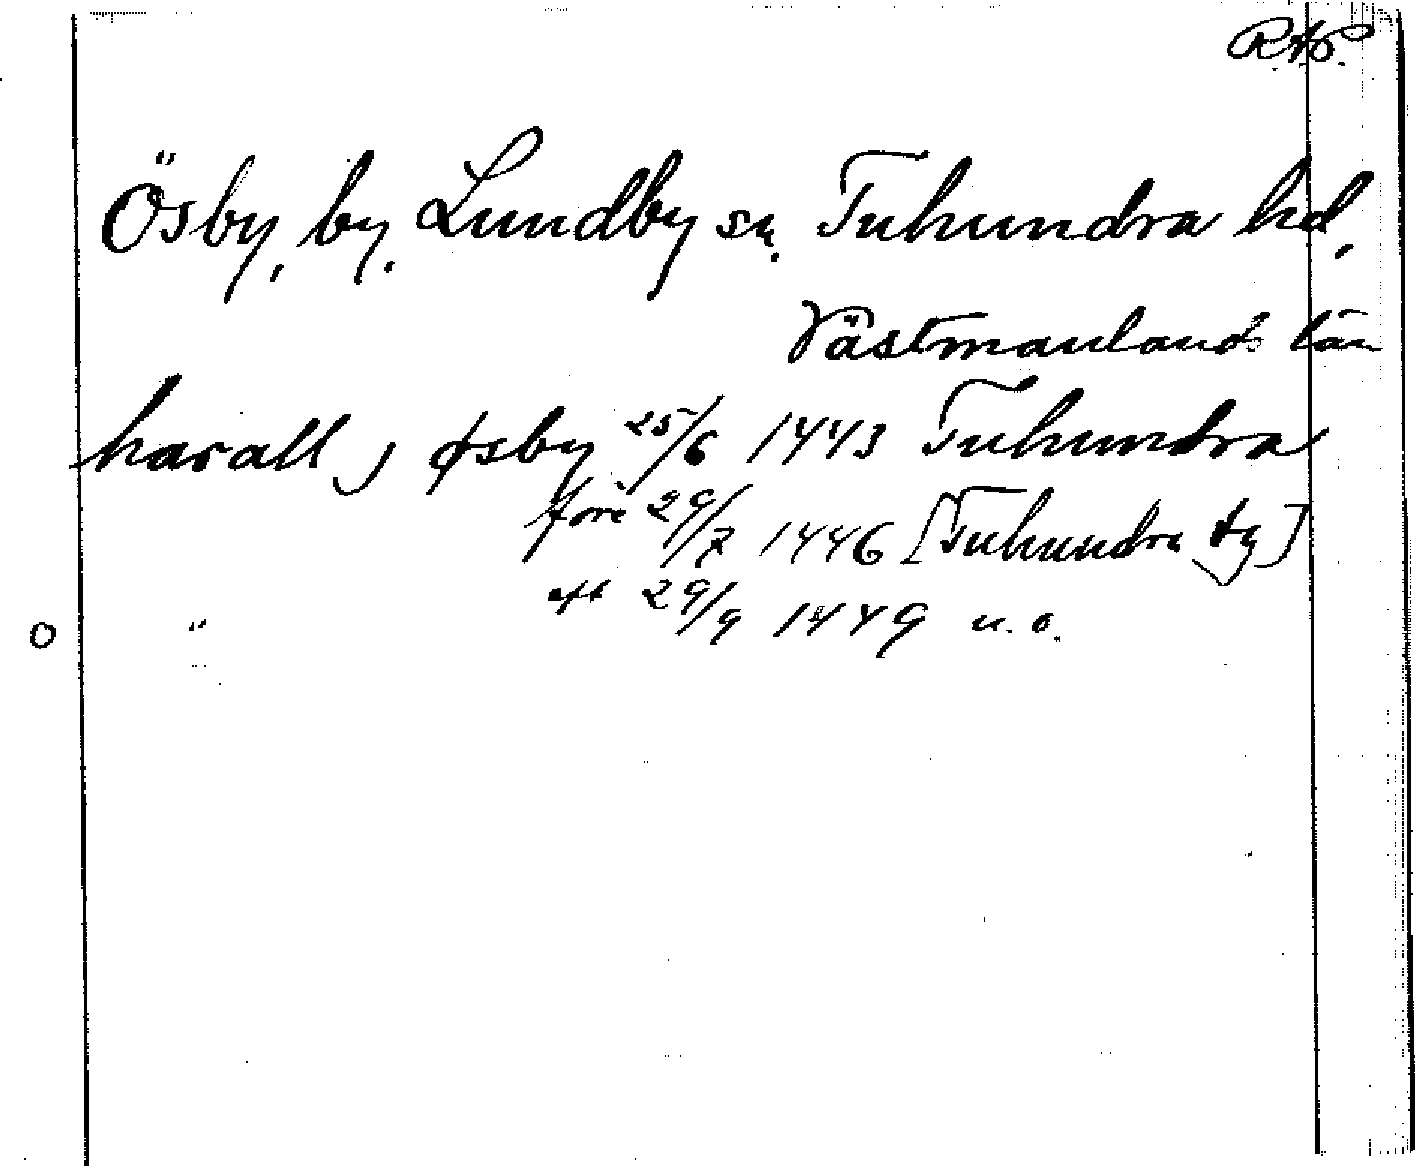 RAP.
Ösby, by. Lundby sn. Tuhundra hd,
Västmanlands län
harall j øsby 25/6 1443 Tuhundra
före 29/7 1446 [Tuhundra tg]
eft 29/9 1449 u. o.
o "